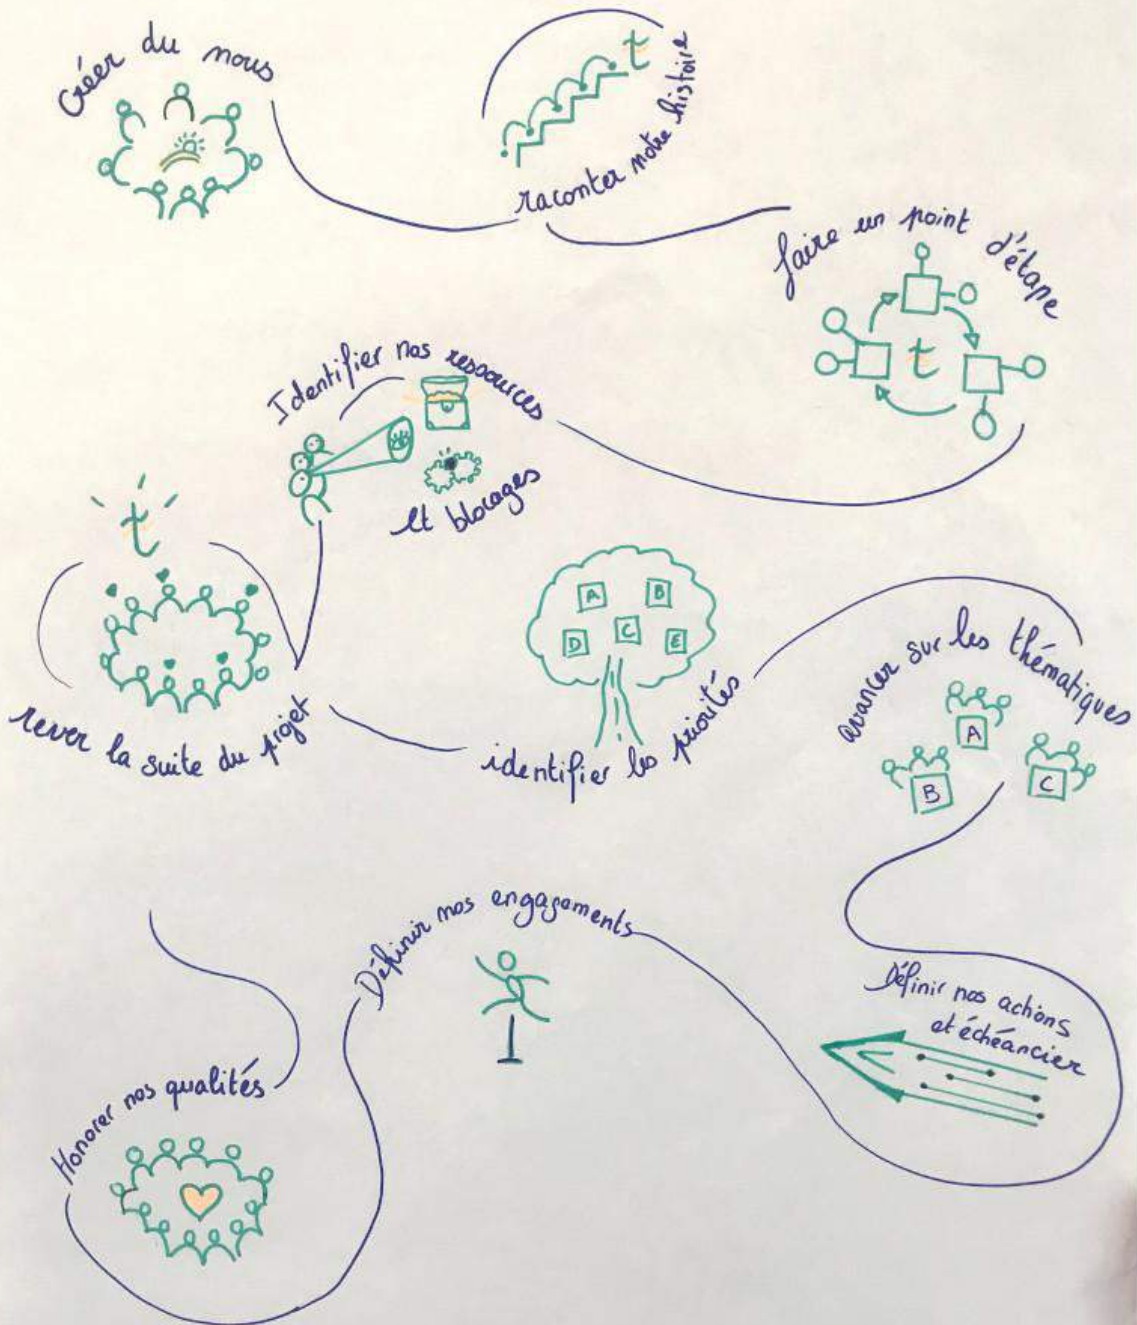 Créer du nous
t
raconter notre histoire
faire un point d'étape
t
Identifier nos ressources
et blocages
t
rever la suite du projet
A
B
D
C
E
identifier les priorités
avancer sur les thématiques
A
B
C
Définir nos actions
et échéancier
Définir nos engagements
Honorer nos qualités